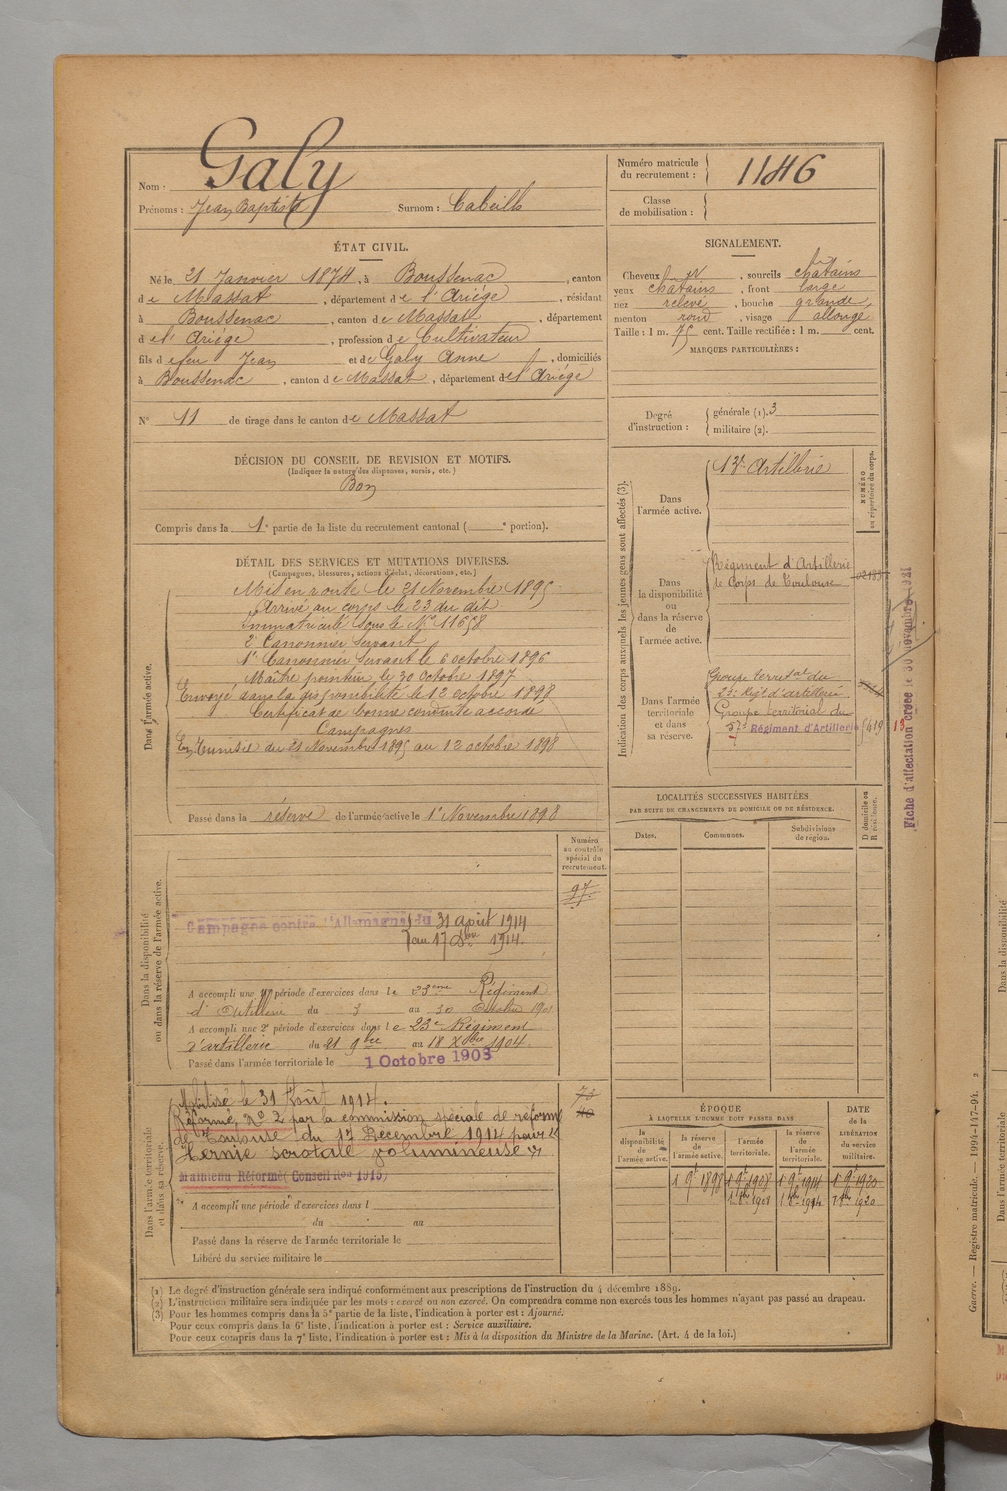 Nom : Galy
Prénoms : Jean Baptiste Surnom : Cabeilh
Numéro matricule du recrutement : 1146
Classe de mobilisation :
ÉTAT CIVIL.
Né le 21 Janvier 1874, à Boussenac, canton
de Massat, département de l'Ariége, résidant
à Boussenac, canton de Massat, département
de l'Ariége, profession de Cultivateur
fils de feu Jean et de Galy Anne, domiciliés
à Boussenac, canton de Massat, département de l'Ariége
N° 11 de tirage dans le canton de Massat
SIGNALEMENT.
Cheveux et, sourcils châtains
yeux châtains, front large
nez relevé, bouche grande,
menton rond, visage allongé
Taille : 1 m. 75 cent. Taille rectifiée : 1 m. cent.
MARQUES PARTICULIÈRES :
Degré d'instruction : générale (1). 3
militaire (2).
DÉCISION DU CONSEIL DE REVISION ET MOTIFS.
(Indiquer la nature des dispenses, sursis, etc.)
Bon
Compris dans la 1e partie de la liste du recrutement cantonal ( e portion).
DÉTAIL DES SERVICES ET MUTATIONS DIVERSES.
(Campagnes, blessures, actions d'éclat, décorations, etc.)
Dans l'armée active.
Mis en route le 21 Novembre 1895
Arrivé au corps le 23 du dit
Immatriculé sous le N°
2e Canonnier servant
1er Canonnier Servant le 6 octobre 1896
Maître pointeur le 30 octobre 1897
Envoyé dans la disponibilité le 12 octobre 1898
Certificat de bonne conduite accordé
Campagnes
En Tunisie du 21 Novembre 1895 au 12 octobre 1898
Passé dans la réserve de l'armée active le 1er Novembre 1898
Indication des corps auxquels les jeunes gens sont affectés (3).
NUMÉRO au répertoire du corps.
Dans l'armée active.
13e Artillerie
Dans la disponibilité ou dans la réserve de l'armée active.
Régiment d'Artillerie
de Corps de Toulouse
Dans l'armée territoriale et dans sa réserve.
Groupe territal du
23e Régt d'artillerie
Groupe territorial du
57e Régiment d'Artillerie
Fiche d'affectation créée le 30 novembre 1921
LOCALITÉS SUCCESSIVES HABITÉES
PAR SUITE DE CHANGEMENTS DE DOMICILE OU DE RÉSIDENCE.
Dates. Communes. Subdivisions de région. D domicile ou R résidence.
Numéro au contrôle spécial du recrutement.
97
Dans la disponibilité ou dans la réserve de l'armée active.
Campagne contre l'Allemagne du 31 Août 1914
au 17 Xbre 1914.
A accompli une 1re période d'exercices dans le 23eme Régiment
d'Artillerie du 3 au 30 Octobre 1901
A accompli une 2e période d'exercices dans le 23e Régiment
d'artillerie du 21 9bre au 18 Xbre 1904.
Passé dans l'armée territoriale le 1 Octobre 1908
Dans l'armée territoriale et dans sa réserve.
Mobilisé le 31 Août 1914.
Réformé N° 2 par la commission spéciale de réforme
de Toulouse du 17 Décembre 1914 pour
Hernie scrotale volumineuse
Maintenu Réformé Conseil Ron 1915
A accompli une période d'exercices dans l
du au
Passé dans la réserve de l'armée territoriale le
Libéré du service militaire le
ÉPOQUE
À LAQUELLE L'HOMME DOIT PASSER DANS
la disponibilité de l'armée active. la réserve de l'armée active. l'armée territoriale. la réserve de l'armée territoriale.
DATE de la LIBÉRATION du service militaire.
1 9e 1898 1 9e 1908 1 9e 1914 1 9e 1920
(1) Le degré d'instruction générale sera indiqué conformément aux prescriptions de l'instruction du 4 décembre 1889.
(2) L'instruction militaire sera indiquée par les mots : exercé ou non exercé. On comprendra comme non exercés tous les hommes n'ayant pas passé au drapeau.
(3) Pour les hommes compris dans la 5e partie de la liste, l'indication à porter est : Ajourné.
Pour ceux compris dans la 6e liste, l'indication à porter est : Service auxiliaire.
Pour ceux compris dans la 7e liste, l'indication à porter est : Mis à la disposition du Ministre de la Marine. (Art. 4 de la loi.)
Guerre. — Registre matricule. — 1994-147-94. 2